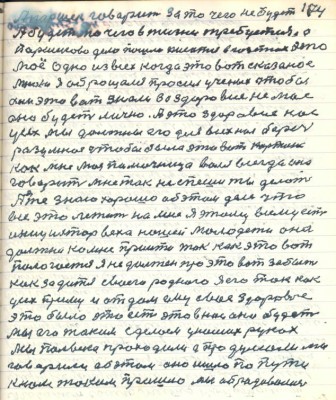 говорит за то чего не будет 174
А будет то чего в жизни требуется, а
Паршиково дело пошло
моё одно из всех когда это вот сказаное
мною Я обращался просил ученых чтобы
они это вот знали Ведь здоровие не мое
оно будет лично. А это здоровие нас
всех мы должны его для всех нас беречь
разумное чтобы была это вот картина
как мне моя помочница Валя всегда она
говорит мне так не спеши ты делать
А я знаю хорошо об этом деле что
все это летит на меня Я этому всему есть
инициатор века нашей молодежи она
должна ко мне прийти так как это вот
полагается Я не должен про это вот забыть
как за дитя своего родного Я его так как
всех приму и отдам ему свое здоровье
это было это есть это в нас оно будет
мы его таким сделаем у наших руках
Мы полвека проходили а продумали мы
говорили об этом оно ишло по пути
к нам таким пришло мы обрадовались